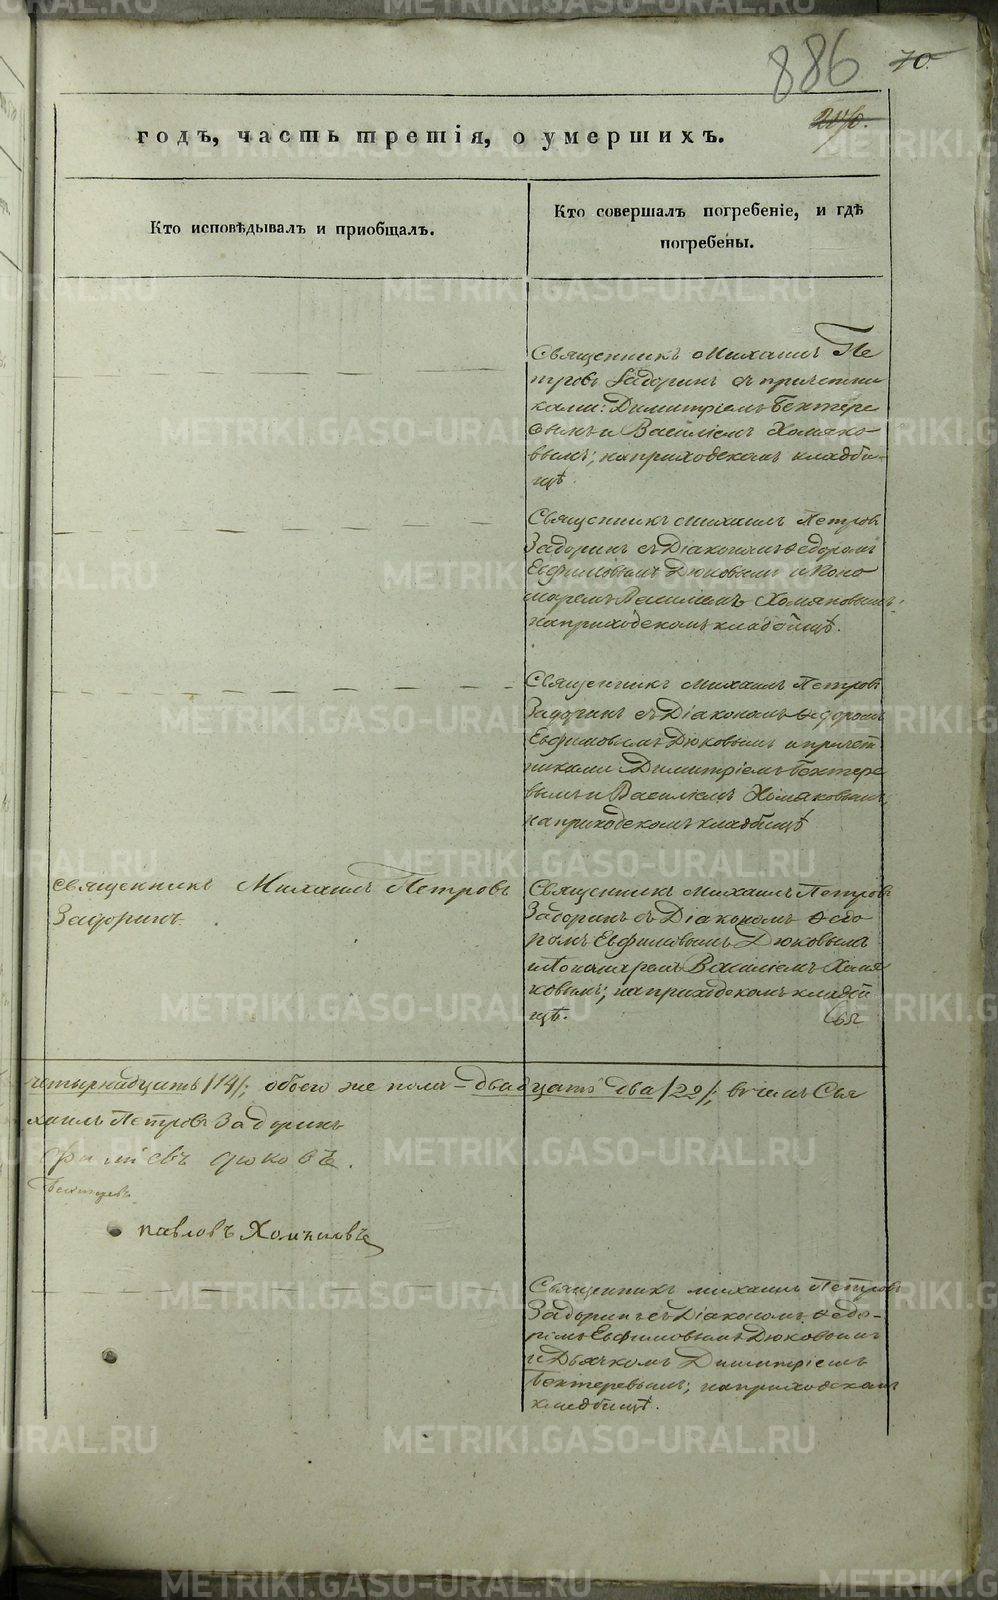 886 70.
годъ, часть третія, о умершихъ.
Кто исповѣдывалъ и пріобщалъ.
Кто совершалъ погребеніе, и гдѣ
погребены.
Священникъ Михаилъ Пе
тровъ Задоринъ съ причетни
ками: Димитріемъ Бехтере
вымъ и Василіемъ Хомяко
вымъ; на приходскомъ кладби
щѣ.
Священникъ Михаилъ Петровъ
Задоринъ съ Діакономъ Ѳедоромъ
Евфимовымъ Дюковымъ и Поно
маремъ Василіемъ Хомяковымъ;
на приходскомъ кладбищѣ.
Священникъ Михаилъ Петровъ
Задоринъ съ Діакономъ Ѳедоромъ
Евфимовымъ Дюковымъ и причет
никами Димитріемъ Бехтере
вымъ и Василіемъ Хомяковымъ,
на приходскомъ кладбищѣ
Священникъ Михаилъ Петровъ
Задоринъ.
Священникъ Михаилъ Петровъ
Задоринъ съ Діакономъ Ѳедо
ромъ Евфимовымъ Дюковымъ
и Пономаремъ Василіемъ Хомя
ковымъ; на приходскомъ кладби
щѣ.
четырнадцать /14/; обоего же пола – двадцать два /22/; въ чемъ Свя
хаилъ Петровъ Задоринъ
Дюковъ.
Бехтеревъ
Павловъ Хомяковъ
Священникъ Михаилъ Петровъ
Задоринъ съ Діакономъ Ѳедо-
ромъ Евфимовымъ Дюковымъ
и Дьячкомъ Димитріемъ
Бехтеревымъ; на приходскомъ
кладбищѣ.
METRIKI.GASO-URAL.RU